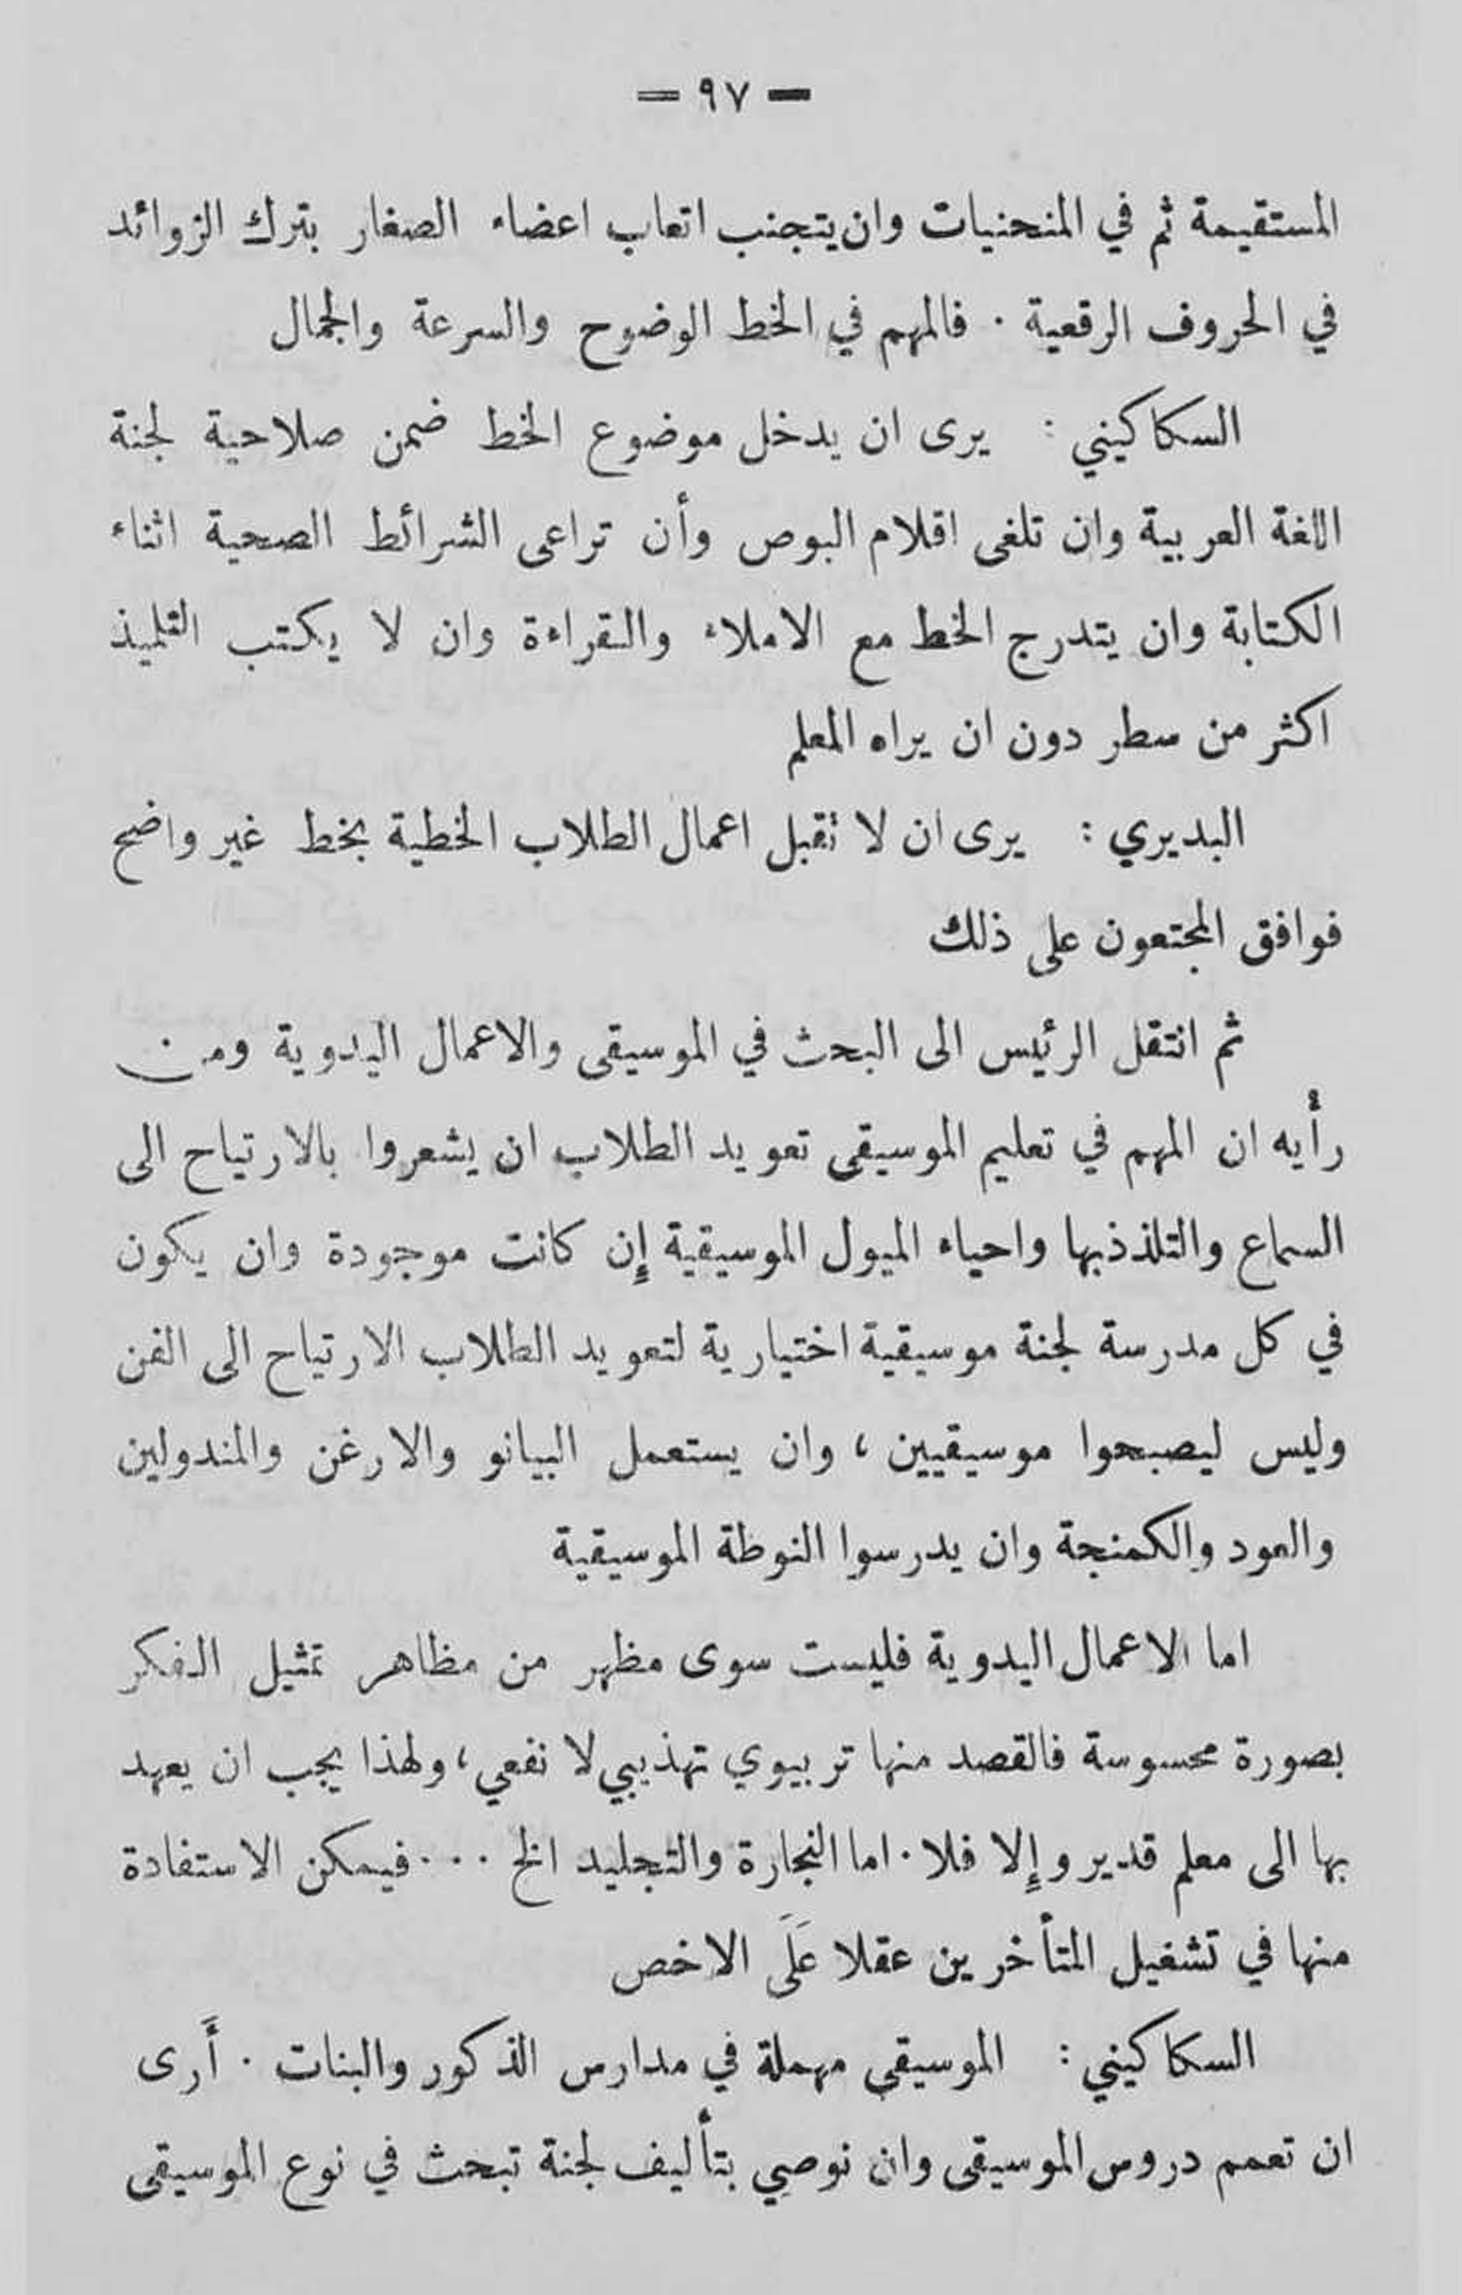 — ٩٧ —
المستقيمة ثم في المنحنيات وان يتجنب اتعاب اعضاء الصغار بترك الزوائد
في الحروف الرقعية . فالمهم في الخط الوضوح والسرعة والجمال
السكاكيني : يرى ان يدخل موضوع الخط ضمن صلاحية لجنة
اللغة العربية وان تلغى اقلام البوص وأن تراعى الشرائط الصحية اثناء
الكتابة وان يتدرج الخط مع الاملاء والقراءة وان لا يكتب التلميذ
اكثر من سطر دون ان يراه المعلم
البديري : يرى ان لا تقبل اعمال الطلاب الخطية بخط غير واضح
فوافق المجتعون على ذلك
ثم انتقل الرئيس الى البحث في الموسيقى والاعمال اليدوية ومن
رأيه ان المهم في تعليم الموسيقى تعويد الطلاب ان يشعروا بالارتياح الى
السماع والتلذذ بها واحياء الميول الموسيقية إن كانت موجودة وان يكون
في كل مدرسة لجنة موسيقية اختيارية لتعويد الطلاب الارتياح الى الفن
وليس ليصبحوا موسيقيين ، وان يستعمل البيانو والارغن والمندولين
والعود والكمنجة وان يدرسوا النوطة الموسيقية
اما الاعمال اليدوية فليست سوى مظهر من مظاهر تمثيل الفكر
بصورة محسوسة فالقصد منها تربيوي تهذيبي لا نفعي ، ولهذا يجب ان يعهد
بها الى معلم قدير وإلا فلا . اما النجارة والتجليد الخ . . . فيمكن الاستفادة
منها في تشغيل المتأخرين عقلا عَلَى الاخص
السكاكيني : الموسيقى مهملة في مدارس الذكور والبنات . أَرى
ان تعمم دروس الموسيقى وان نوصي بتأليف لجنة تبحث في نوع الموسيقى